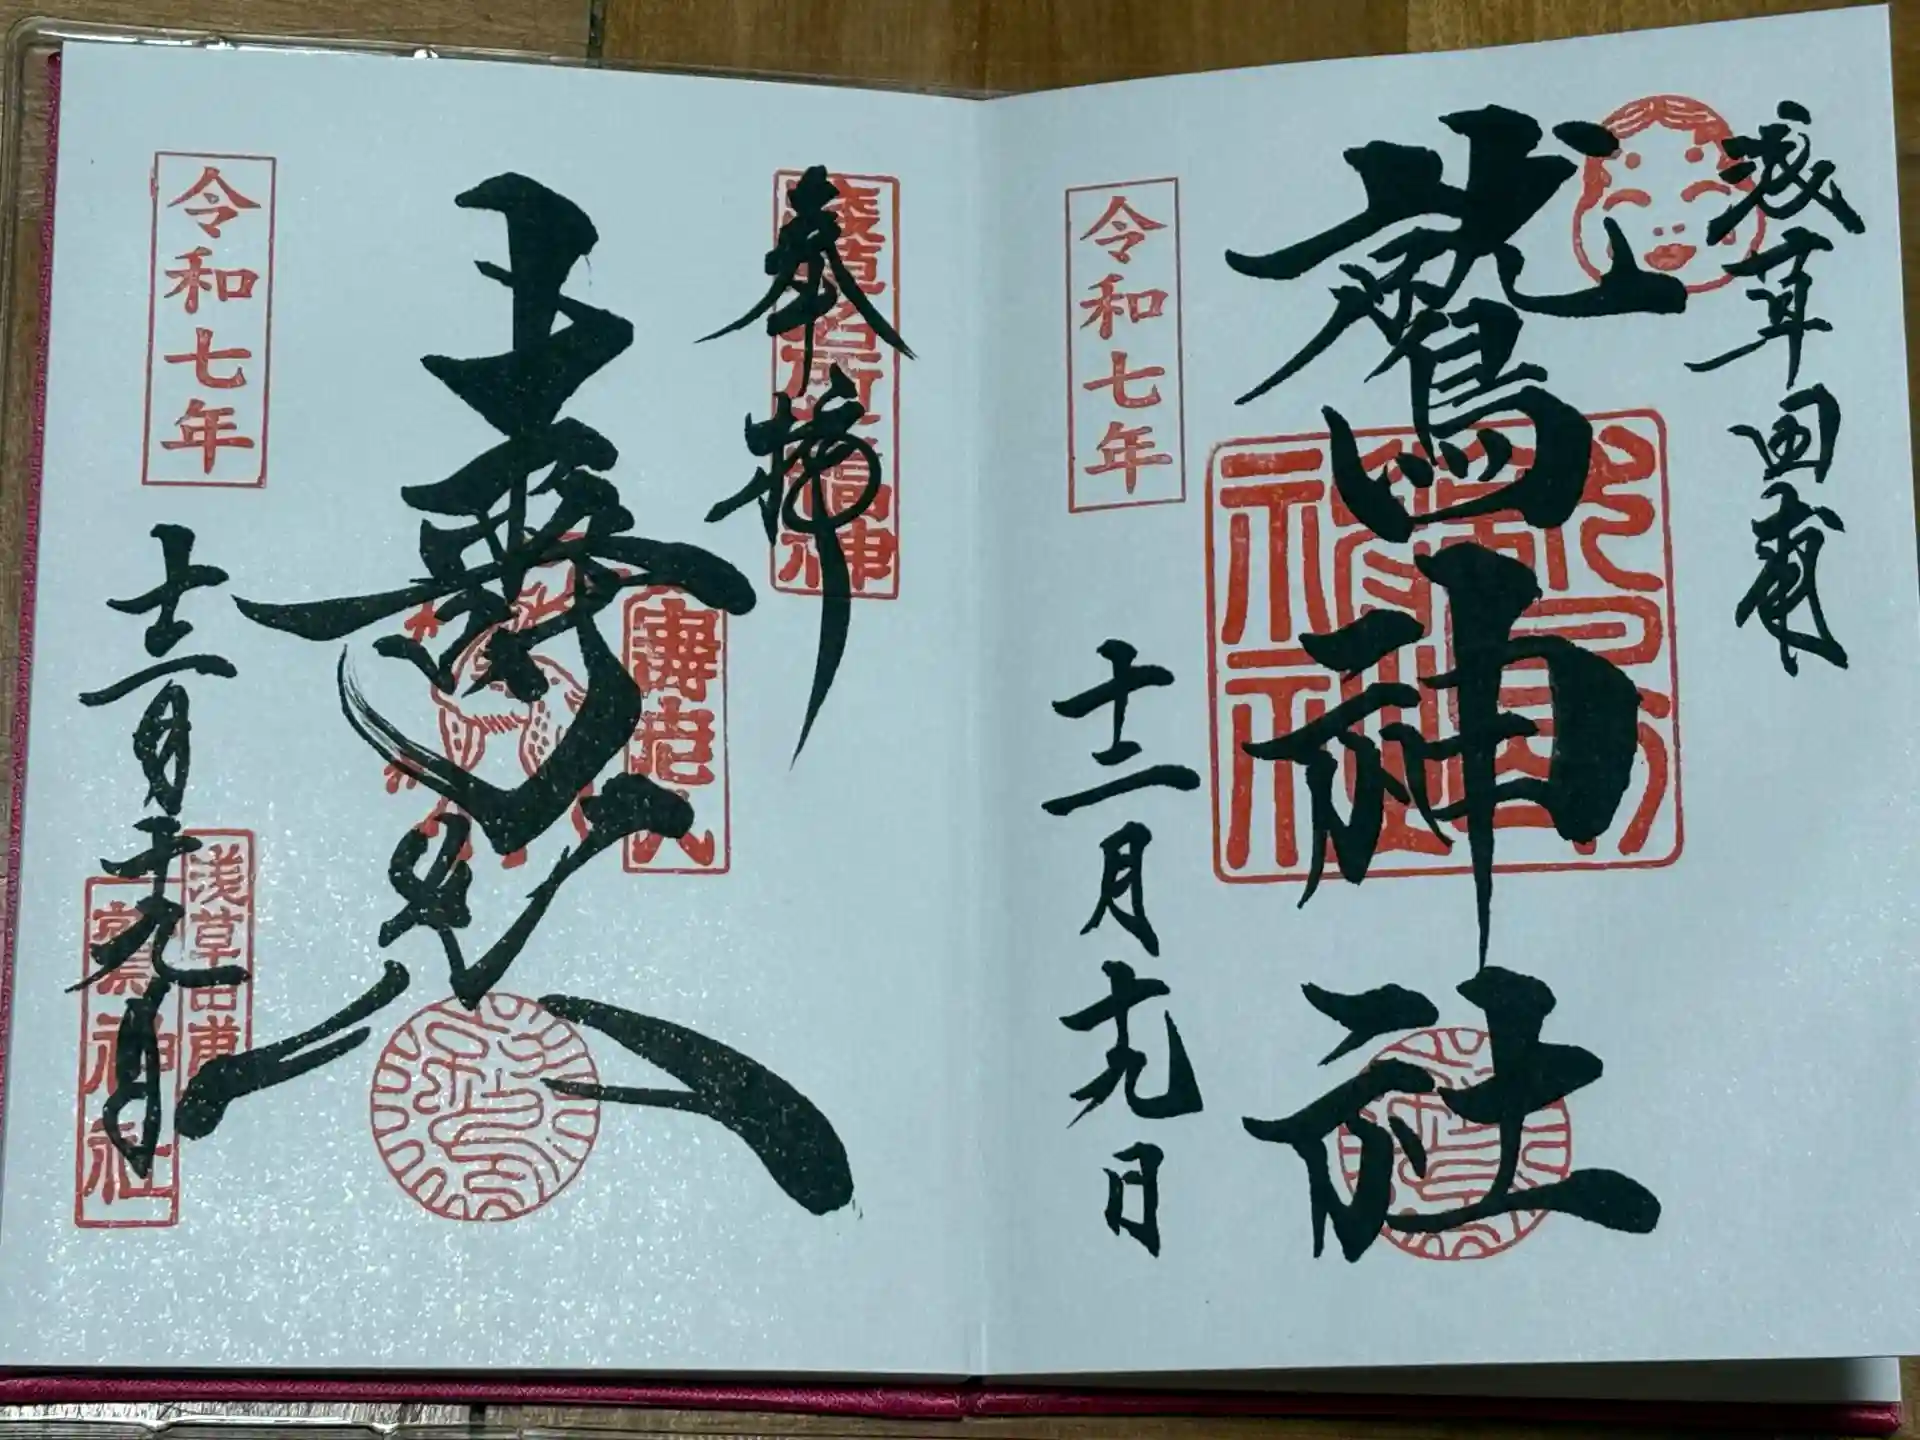 浅草田甫
鷲神社
令和七年
十二月十九日
奉拝
浅草名所七福神
寿老人
壽老人
令和七年
十二月十九日
浅草田甫
鷲神社